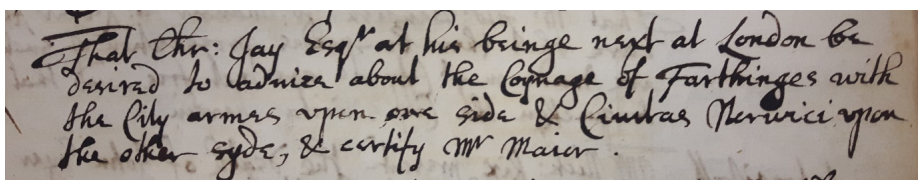 That Chr: Jay Esqr at his beinge next at London be
desired to advize about the Coynage of Farthinges with
the City armes vpon one side & Ciuitas Norwici vpon
the other syde, & certify Mr Maior.